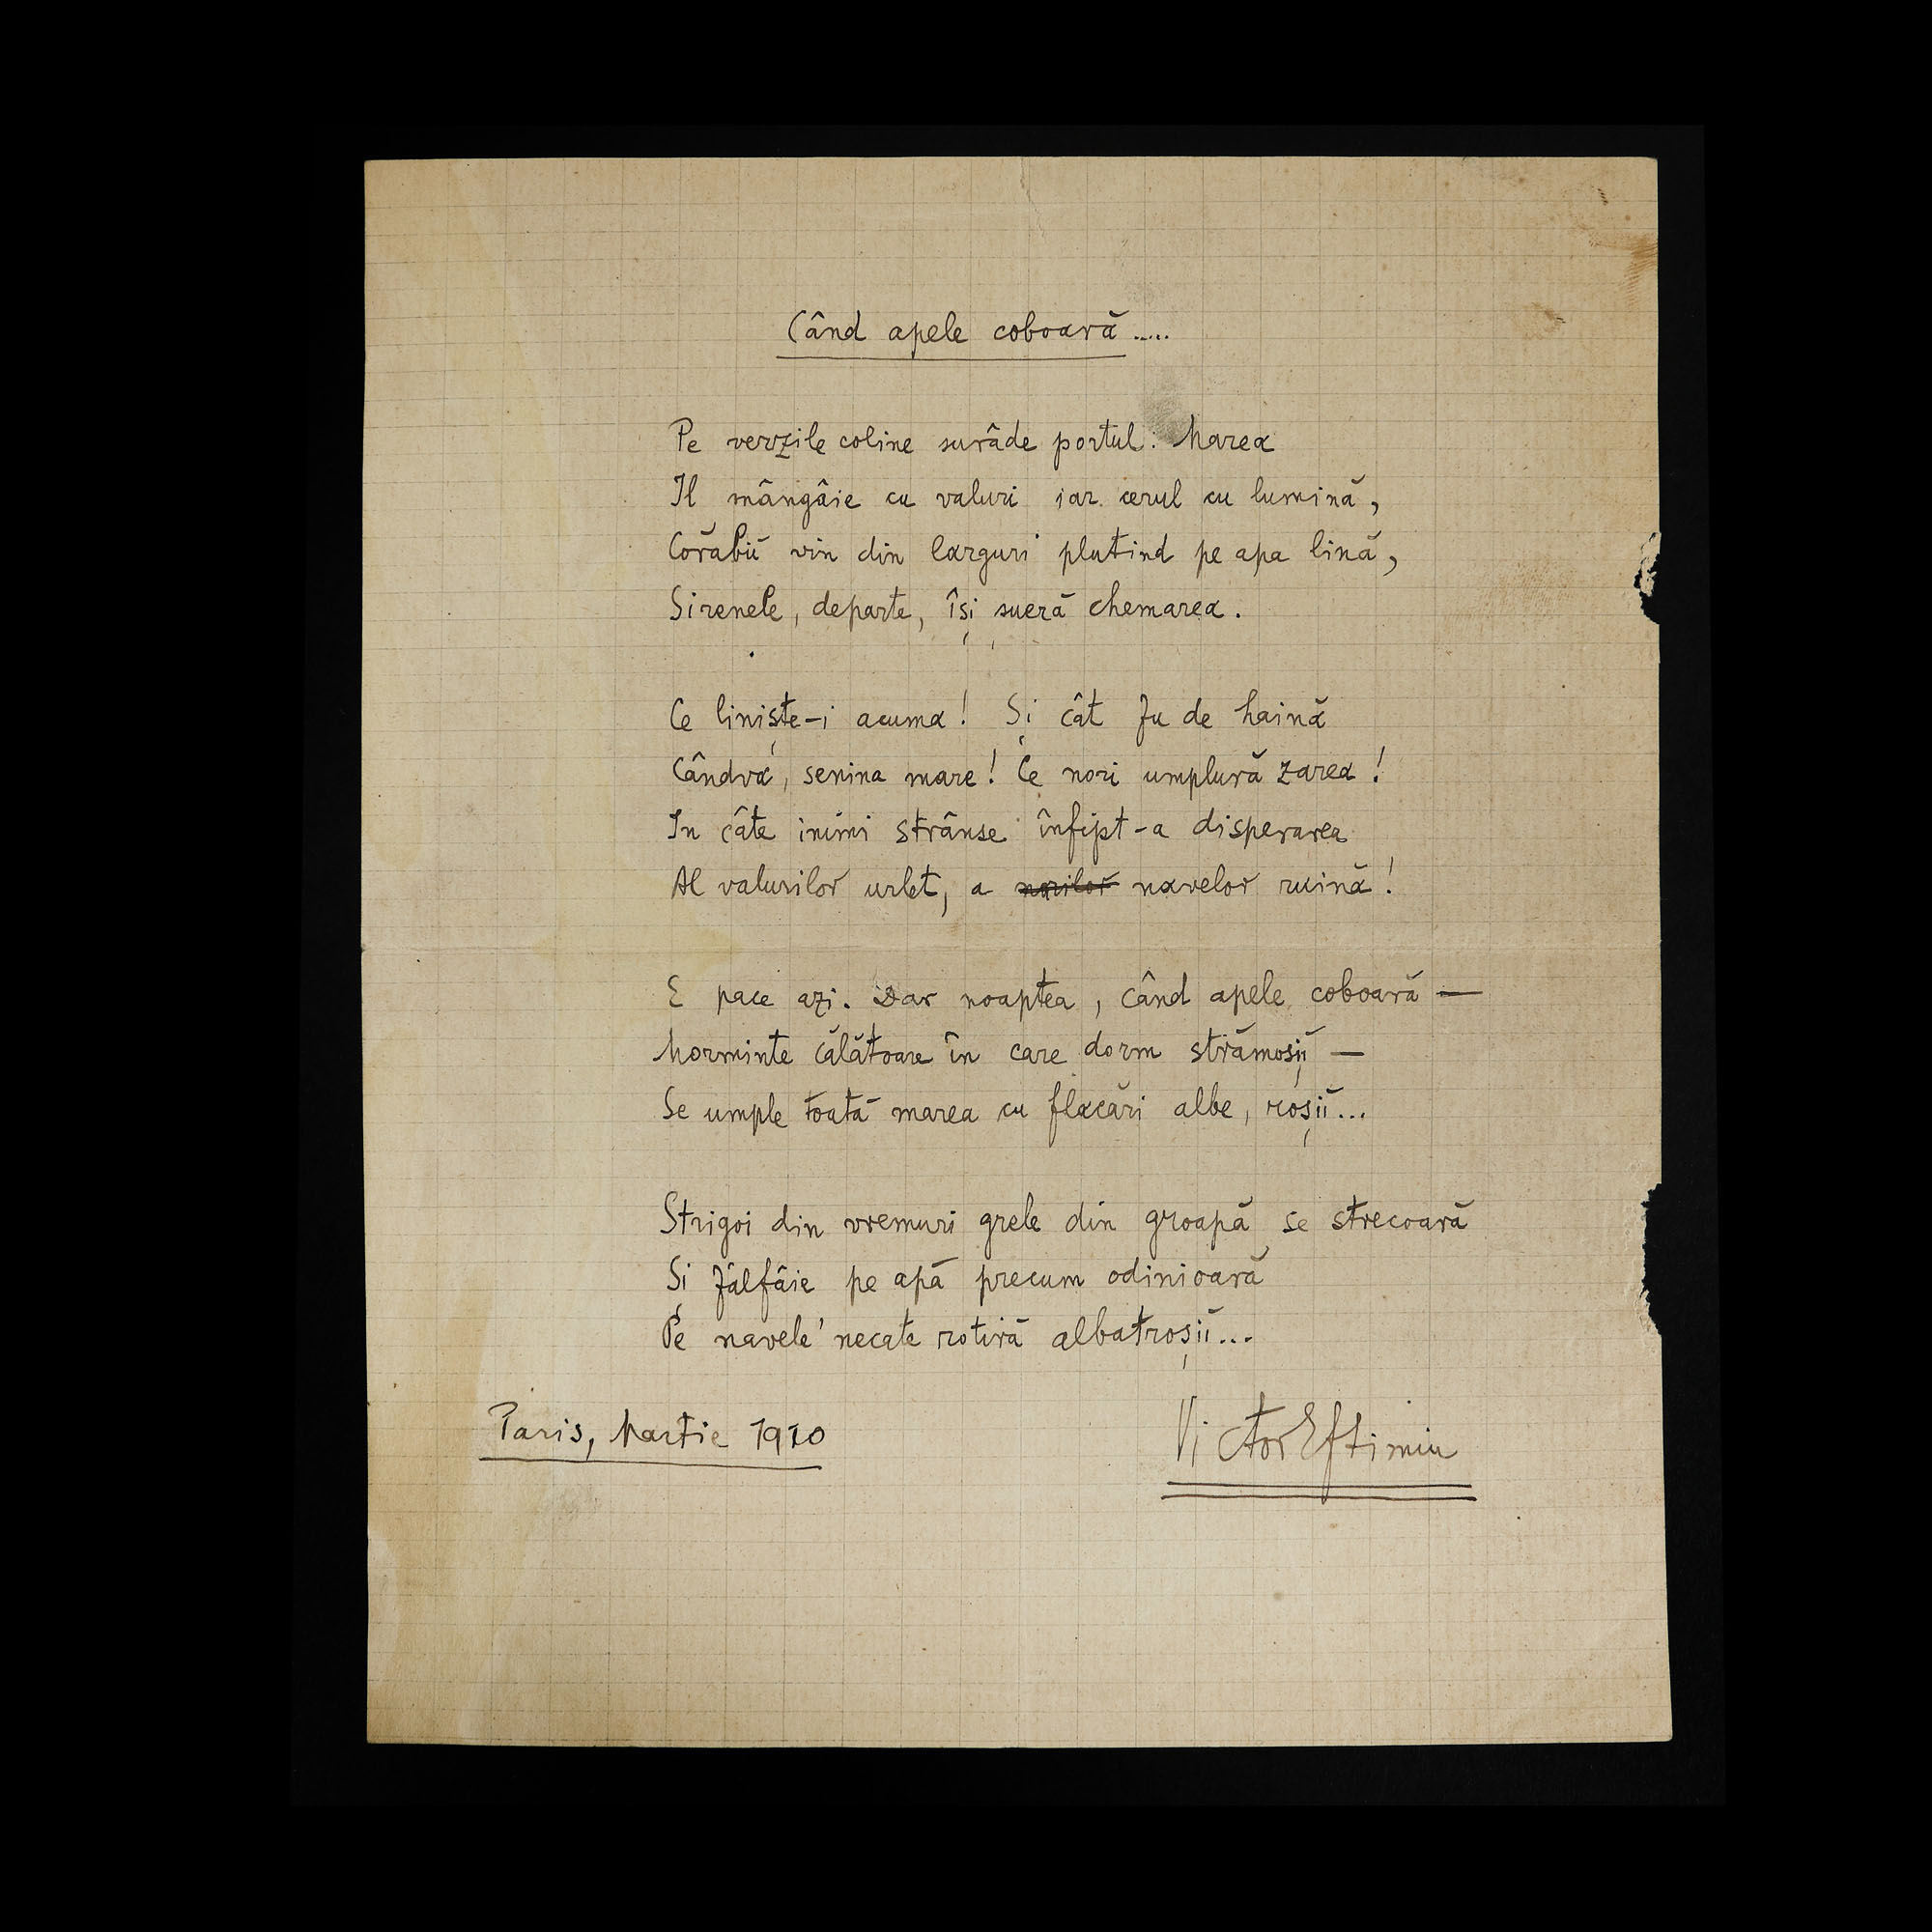 Când apele coboară.....
Pe verzile coline surâde portul. Marea
Il mângâie cu valuri iar cerul cu lumină,
Corăbii vin din larguri plutind pe apa lină,
Sirenele, departe, își șueră chemarea.
Ce liniște-i acuma! Și cât fu de haină
Cândva, senina mare! Ce nori umplură zarea!
In câte inimi strânse înfipt-a disperarea
Al valurilor urlet, a norilor navelor ruină!
E pace azi. Dar noaptea, când apele coboară —
Morminte călătoare în care dorm strămoșii —
Se umple toată marea cu flacări albe, roșii...
Strigoi din vremuri grele din groapă se strecoară
Și fâlfâie pe apă precum odinioară
Pe navele necate rotiră albatroșii...
Paris, Martie 1910
Victor Eftimiu